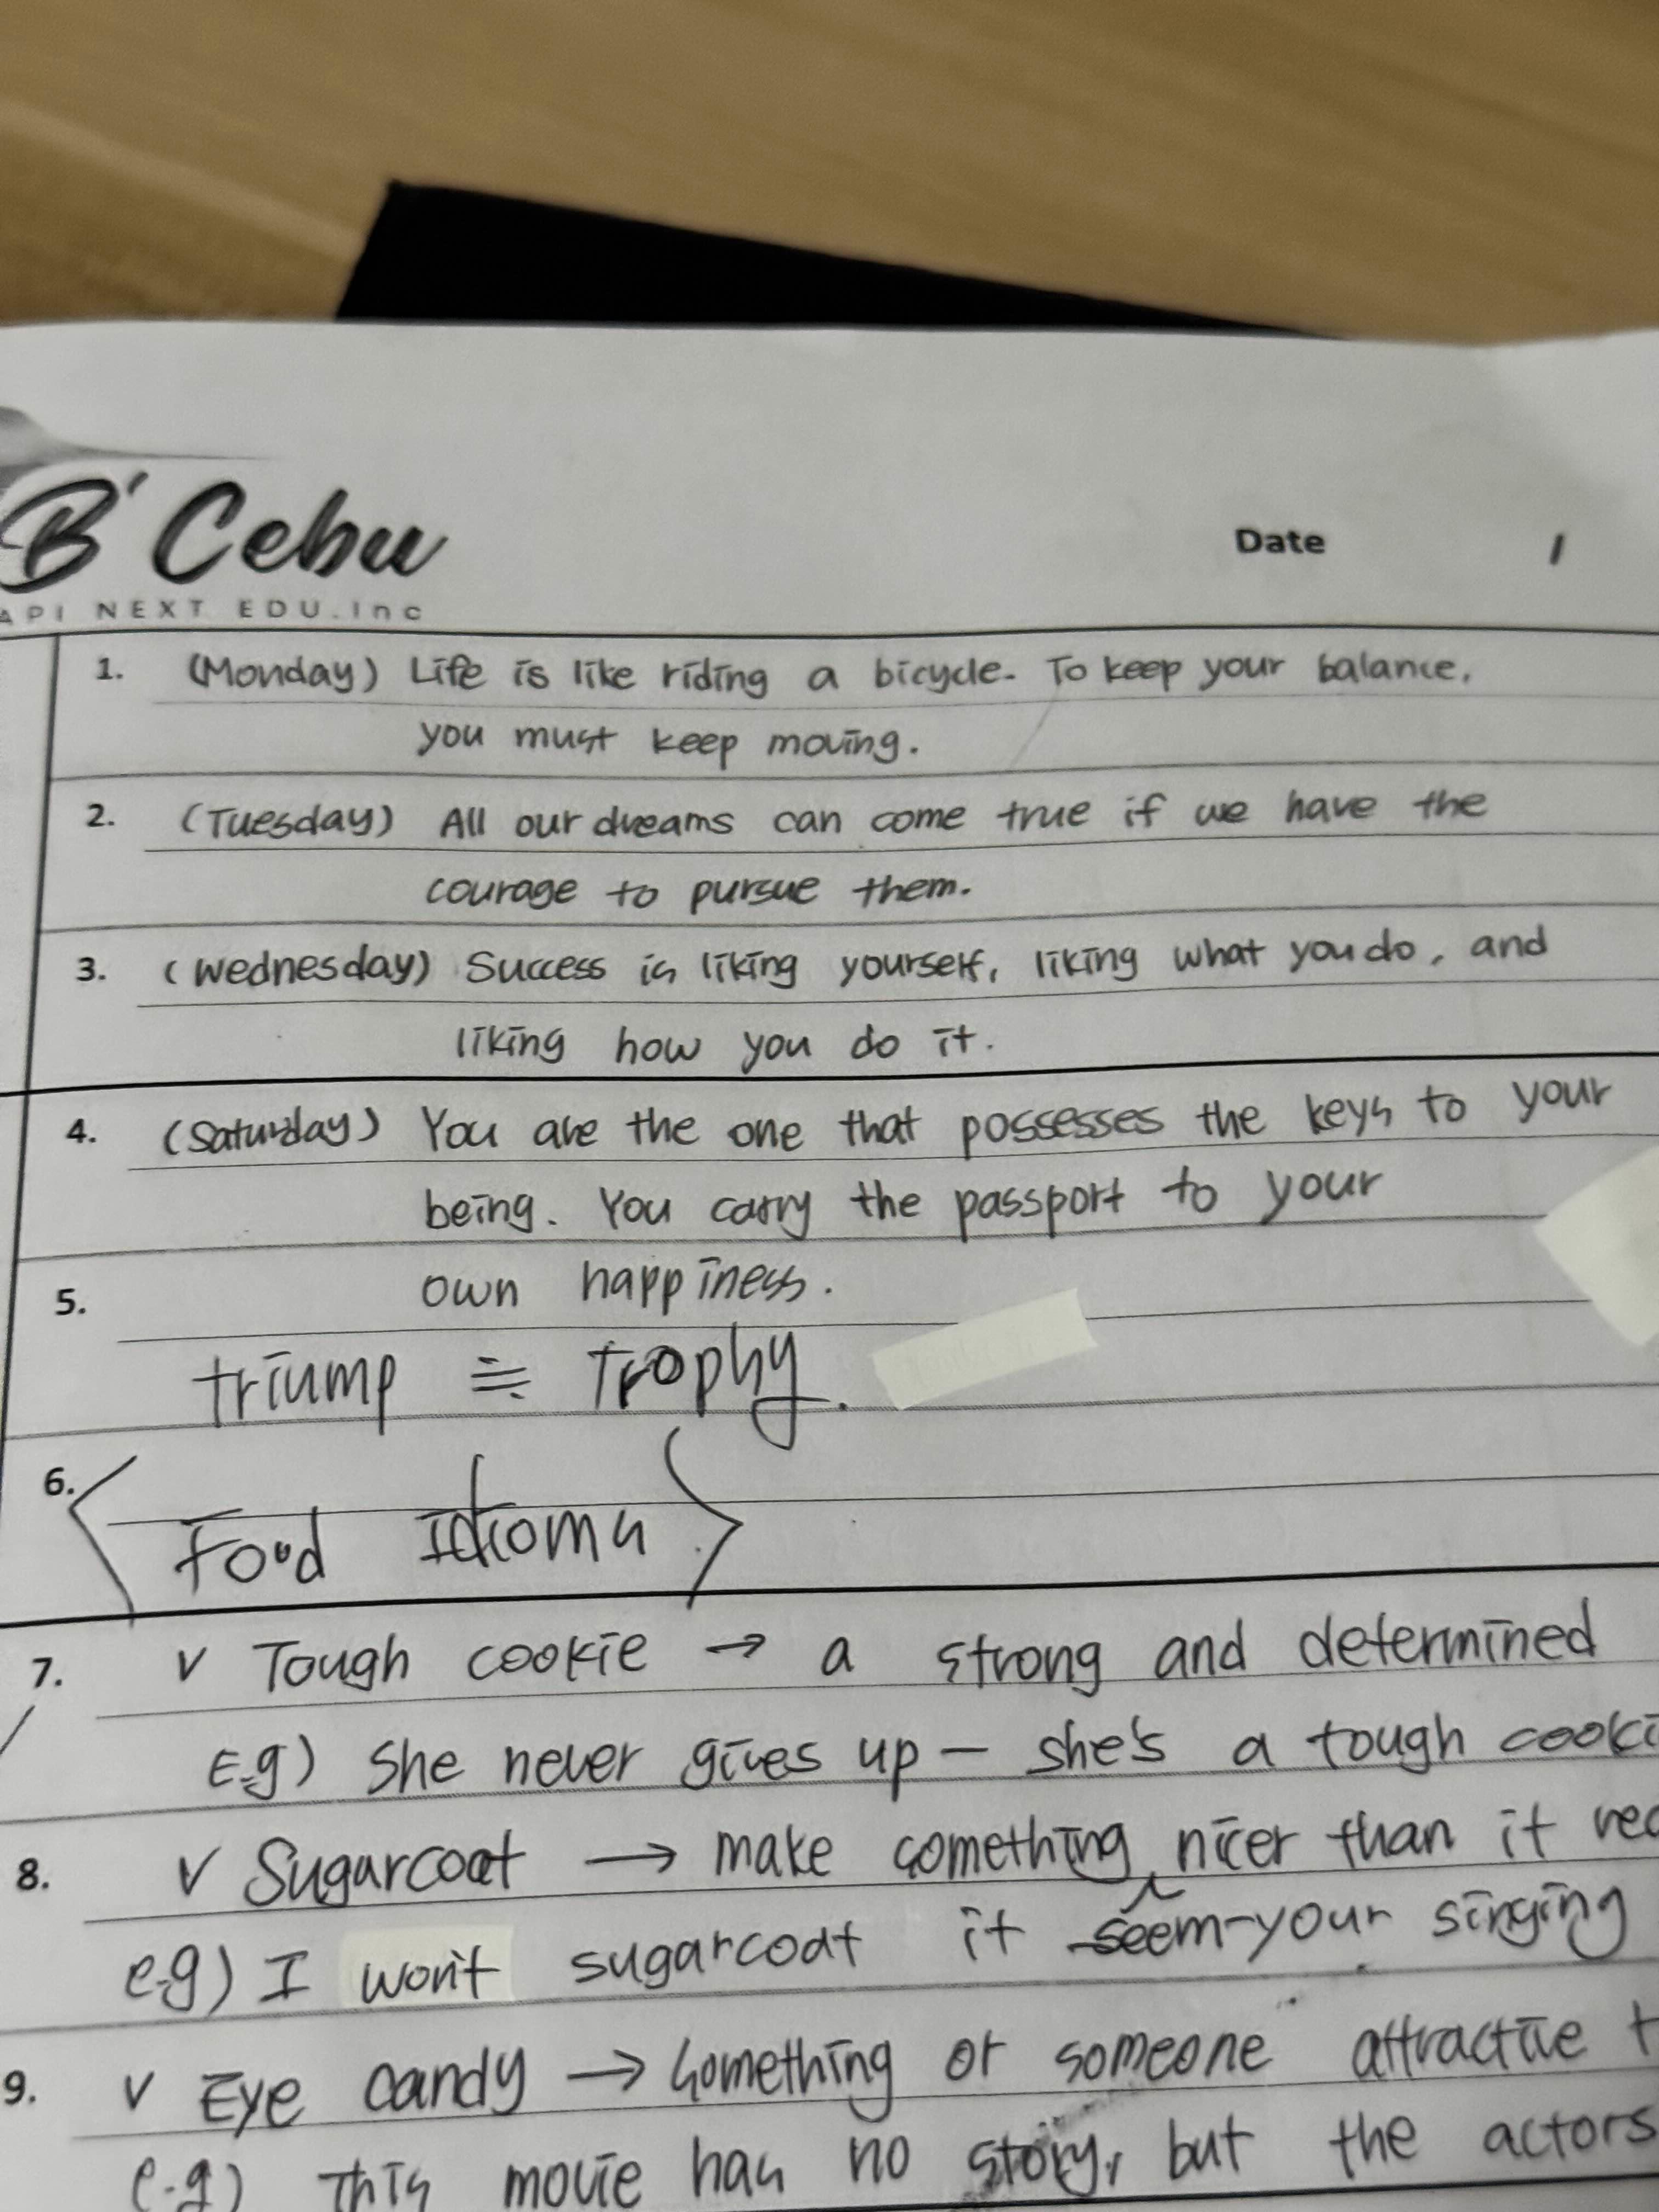 B' Cebu
API NEXT EDU.Inc
Date /
1. (Monday) Life is like riding a bicycle. To keep your balance,
you must keep moving.
2. (Tuesday) All our dreams can come true if we have the
courage to pursue them.
3. (Wednesday) Success is liking yourself, liking what you do, and
liking how you do it.
4. (Saturday) You are the one that possesses the keys to your
being. You carry the passport to your
5. own happiness.
triump ≒ Trophy.
6. < Food Idioms >
7. v Tough cookie → a strong and determined
E.g) She never gives up - she's a tough cooki
8. v Sugarcoat → make something nicer than it rea
seem
e.g) I won't sugarcoat it - your singing
9. v Eye candy → Something or someone attractive t
e.g) This movie has no story, but the actors